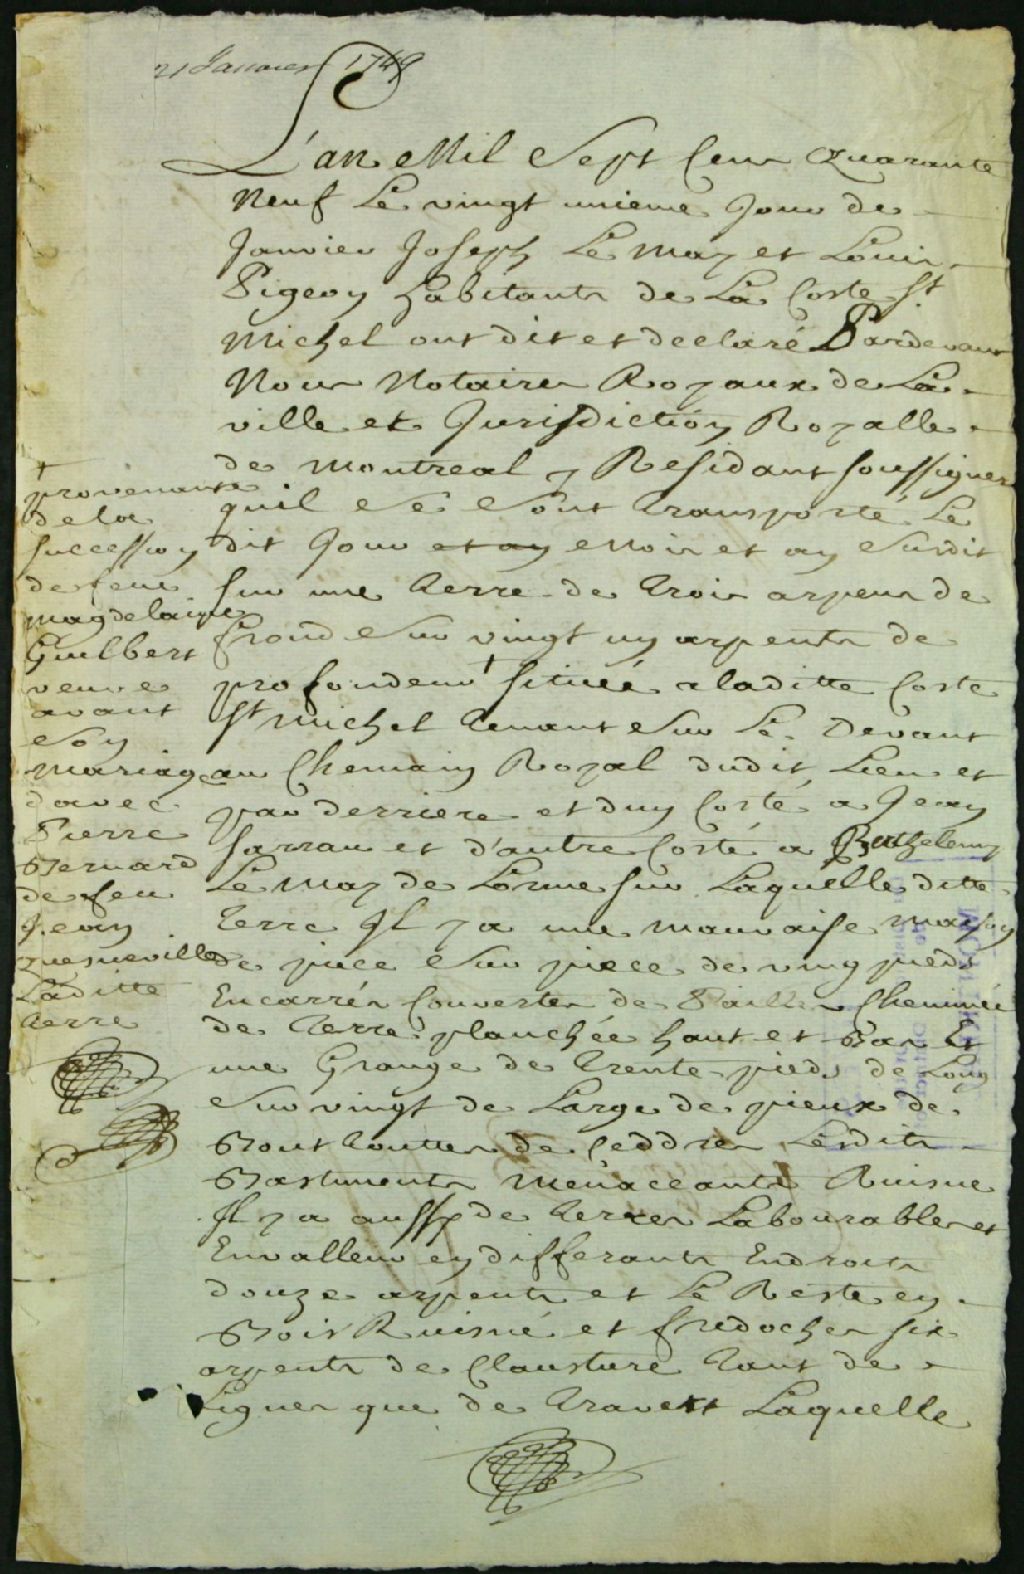 21 Janvier 1749
L'an Mil Sept Cens Quarante
Neuf Le vingt unieme Jour de
Janvier Joseph Le may et Louis
Pigeon habitants de La Coste St
Michel ont dit et declaré Pardevant
Nous Notaires Royaux de La
ville et Jurisdiction Royalle
de Montreal y Residant soussignes
quil Se Sont transporté Le
dit Jour et an Mois et an Susdit
sur une terre de trois arpens de
frond Sur vingt un arpents de
profondeur + située a laditte Coste
St Michel tenant Sur Le Devant
au Chemain Royal dudit Lieu et
par derriere et d'un Costé a Jean
Sarrau et d'autre Costé a Berthelemy
Le may de Lorme sur Laquelle ditte
terre Il y a une mauvaise maison
de piece Sur piece de ving pieds
En carrés Couvertes de Paille Cheminée
de terre planchée haut et Bas Et
une Grange de trente pieds de Long
Sur vingt de Large de pieux de
Bout Couttes de Ceddres Lesdits
Bastiments menaceants Ruisne
Il y a aussy de terres Labourables et
En valleur en differants Endroits
douze arpents et Le Reste en
Bois Ruisné et fredoches six
arpents de Clausture tant de
Lignes que de travers Laquelle
+
provenante
de la
succession
de feue
magdelaine
Guilbert
veuve
avant
Son
mariage
davec
Pierre
Bernard
de feu
Jean
Quesneville
Laditte
terre